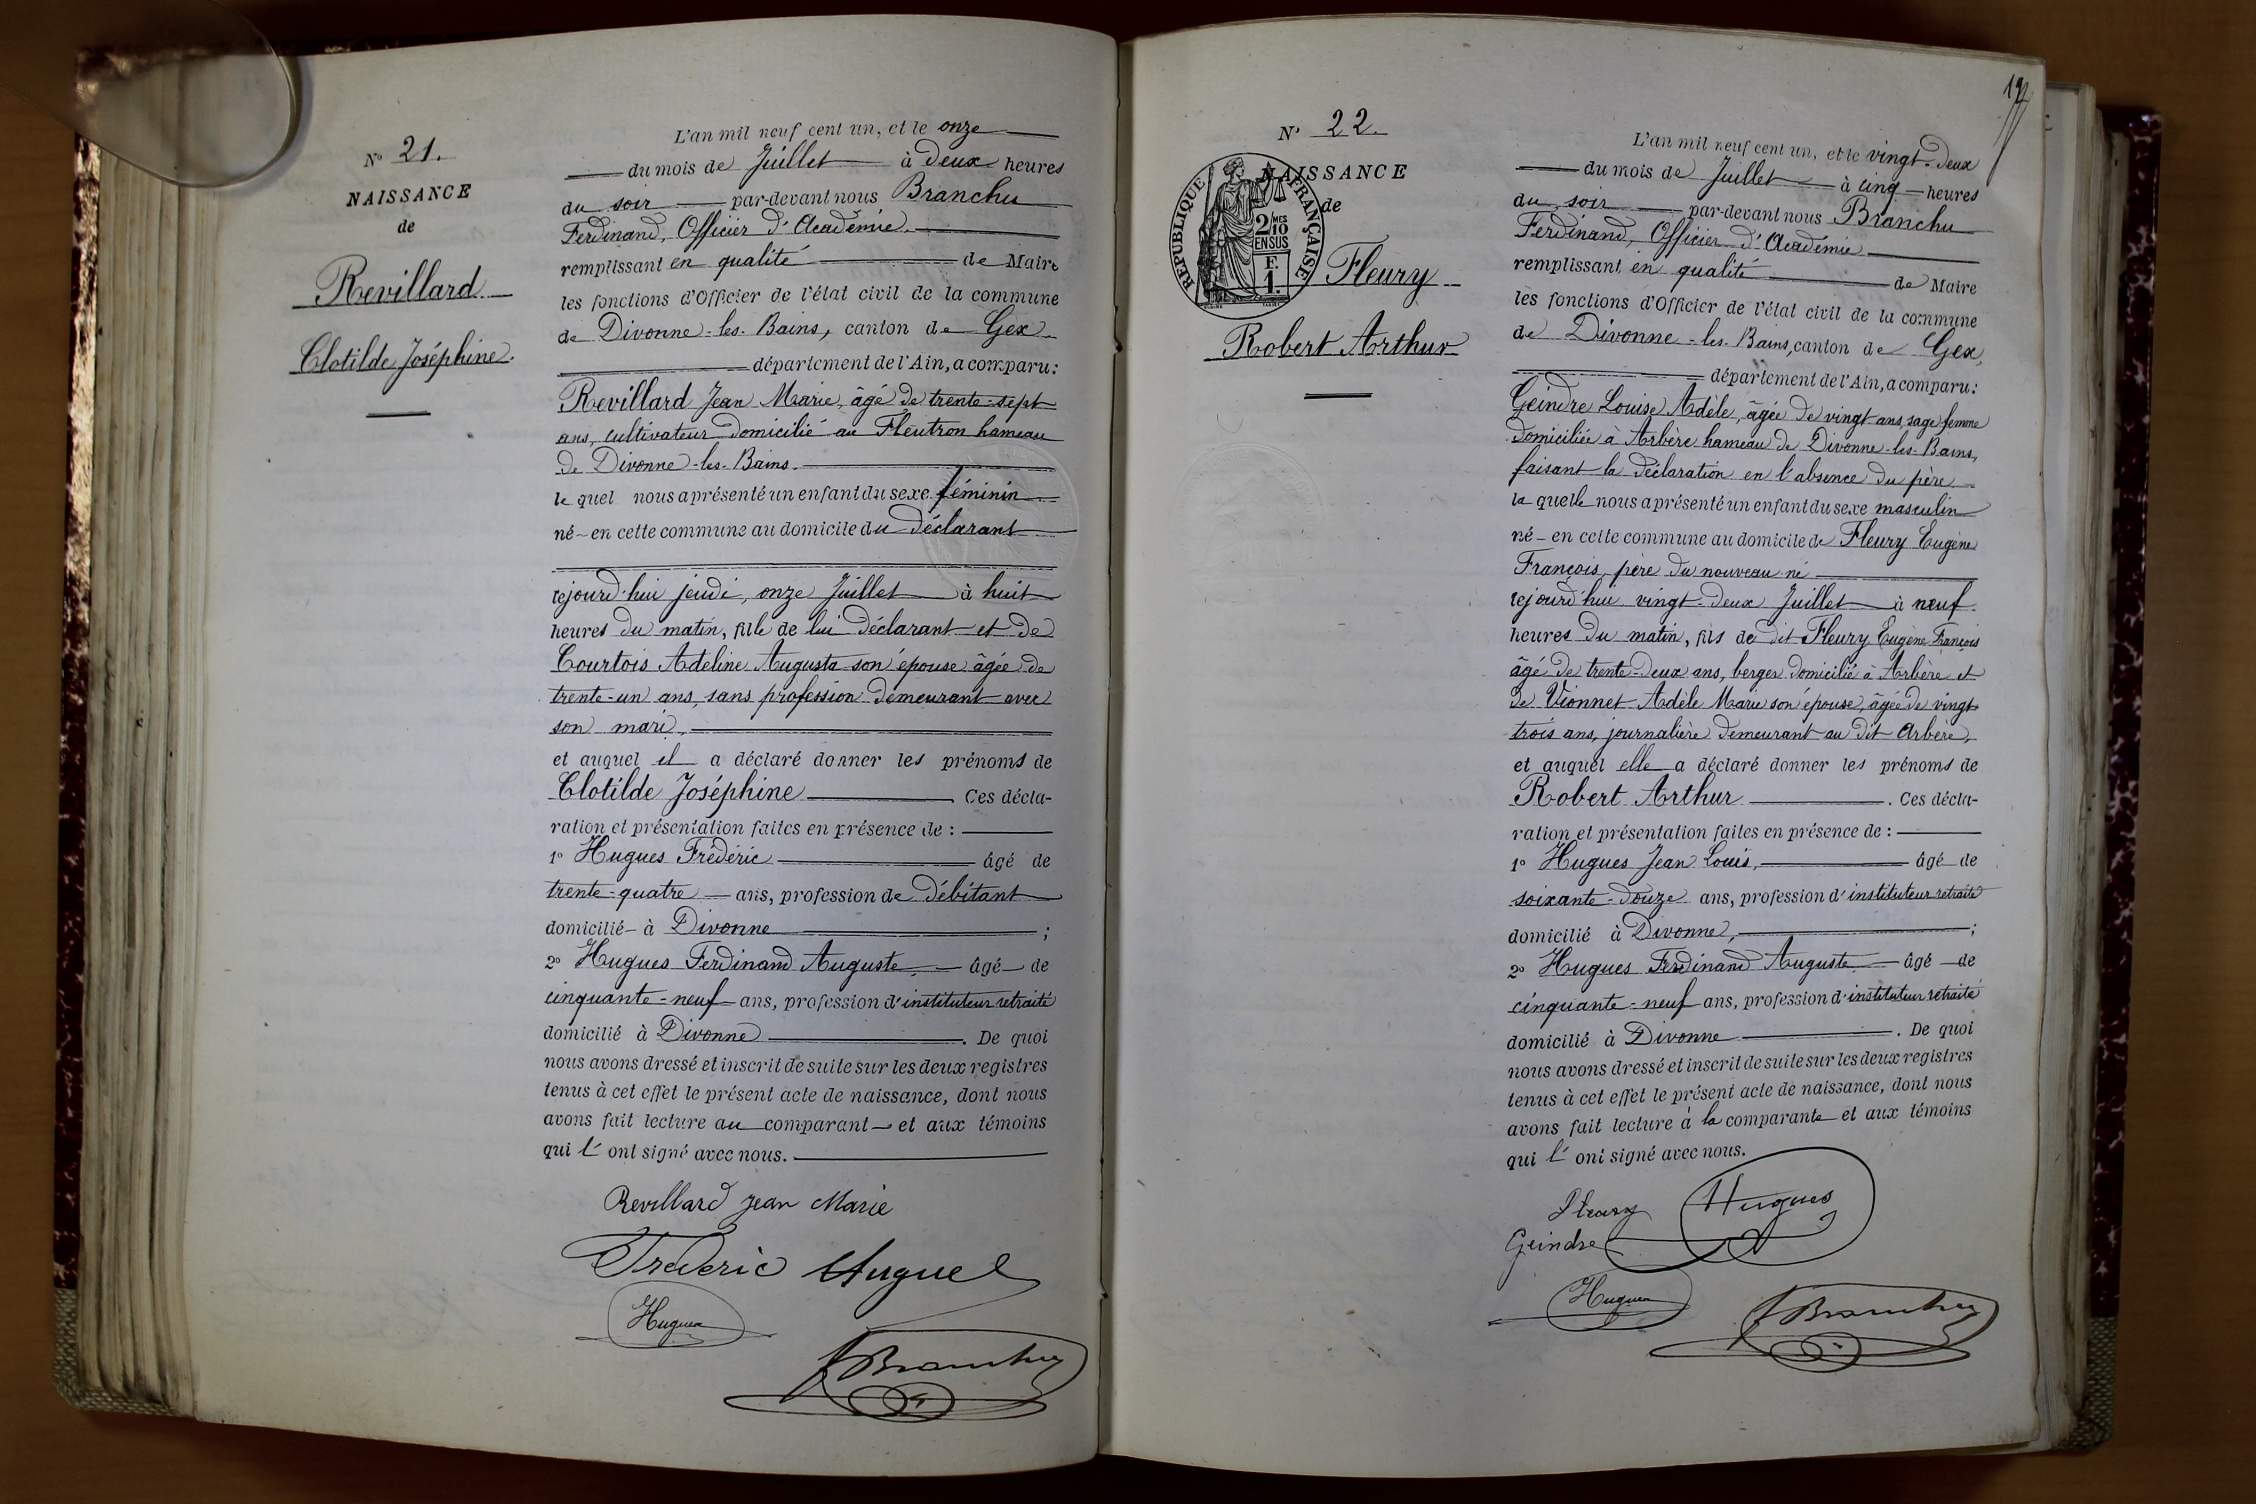 N° 21.
NAISSANCE
de
Revillard
Clotilde Joséphine.
L'an mil neuf cent un, et le onze
du mois de Juillet à deux heures
du soir par-devant nous Branchu
Ferdinand, Officier d'Académie.
remplissant en qualité de Maire
les fonctions d'Officier de l'état civil de la commune
de Divonne-les-Bains, canton de Gex
département de l'Ain, a comparu:
Revillard Jean Marie, âgé de trente-sept
ans, cultivateur domicilié au Fleutron hameau
de Divonne-les-Bains.
le quel nous a présenté un enfant du sexe féminin
né en cette commune au domicile du déclarant
cejourd'hui jeudi, onze Juillet à huit
heures du matin, fille de lui déclarant et de
Courtois Adeline Augusta son épouse âgée de
trente-un ans, sans profession demeurant avec
son mari,
et auquel il a déclaré donner les prénoms de
Clotilde Joséphine. Ces décla-
ration et présentation faites en présence de :
1° Hugues Frédéric âgé de
trente-quatre ans, profession de débitant
domicilié à Divonne ;
2° Hugues Ferdinand Auguste âgé de
cinquante-neuf ans, profession d'instituteur retraité
domicilié à Divonne. De quoi
nous avons dressé et inscrit de suite sur les deux registres
tenus à cet effet le présent acte de naissance, dont nous
avons fait lecture au comparant et aux témoins
qui l' ont signé avec nous.
Revillard Jean Marie
Frederic Hugues
Hugues
Branchu
17
N° 22.
NAISSANCE
de
RÉPUBLIQUE FRANÇAISE
2/10 MES
EN SUS
F.
1.
Fleury
Robert Arthur
L'an mil neuf cent un, et le vingt-deux
du mois de Juillet à cinq heures
du soir par-devant nous Branchu
Ferdinand, Officier d'Académie
remplissant en qualité de Maire
les fonctions d'Officier de l'état civil de la commune
de Divonne-les-Bains, canton de Gex,
département de l'Ain, a comparu:
Geindre Louise Adèle, âgée de vingt ans, sage femme
domiciliée à Arbère hameau de Divonne-les-Bains,
faisant la déclaration en l'absence du père
la quelle nous a présenté un enfant du sexe masculin
né en cette commune au domicile de Fleury Eugène
François, père du nouveau-né
cejourd'hui vingt-deux Juillet à neuf
heures du matin, fils de dit Fleury Eugène François
âgé de trente-deux ans, berger domicilié à Arbère et
de Vionnet Adèle Marie son épouse, âgée de vingt
trois ans, journalière demeurant au dit Arbère,
et auquel elle a déclaré donner les prénoms de
Robert Arthur. Ces décla-
ration et présentation faites en présence de :
1° Hugues Jean Louis, âgé de
soixante-douze ans, profession d'instituteur retraité
domicilié à Divonne, ;
2° Hugues Ferdinand Auguste âgé de
cinquante-neuf ans, profession d'instituteur retraité
domicilié à Divonne. De quoi
nous avons dressé et inscrit de suite sur les deux registres
tenus à cet effet le présent acte de naissance, dont nous
avons fait lecture à la comparante et aux témoins
qui l' ont signé avec nous.
Fleury Hugues
Geindre
Hugues
Branchu